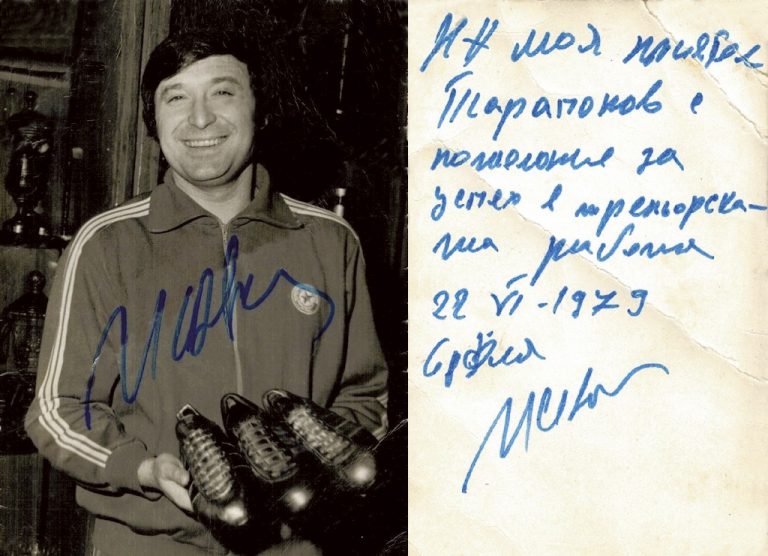 на моя приятел
Тарапонов с
пожелание за
успех в треньорска-
та работа
22 VI - 1979